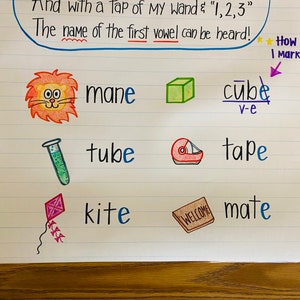 And with a Tap of My Wand & "1,2,3"
The name of the first vowel can be heard!
How
I mark
mane
cūbe
v-e
tube
tape
kite
WELCOME
mate